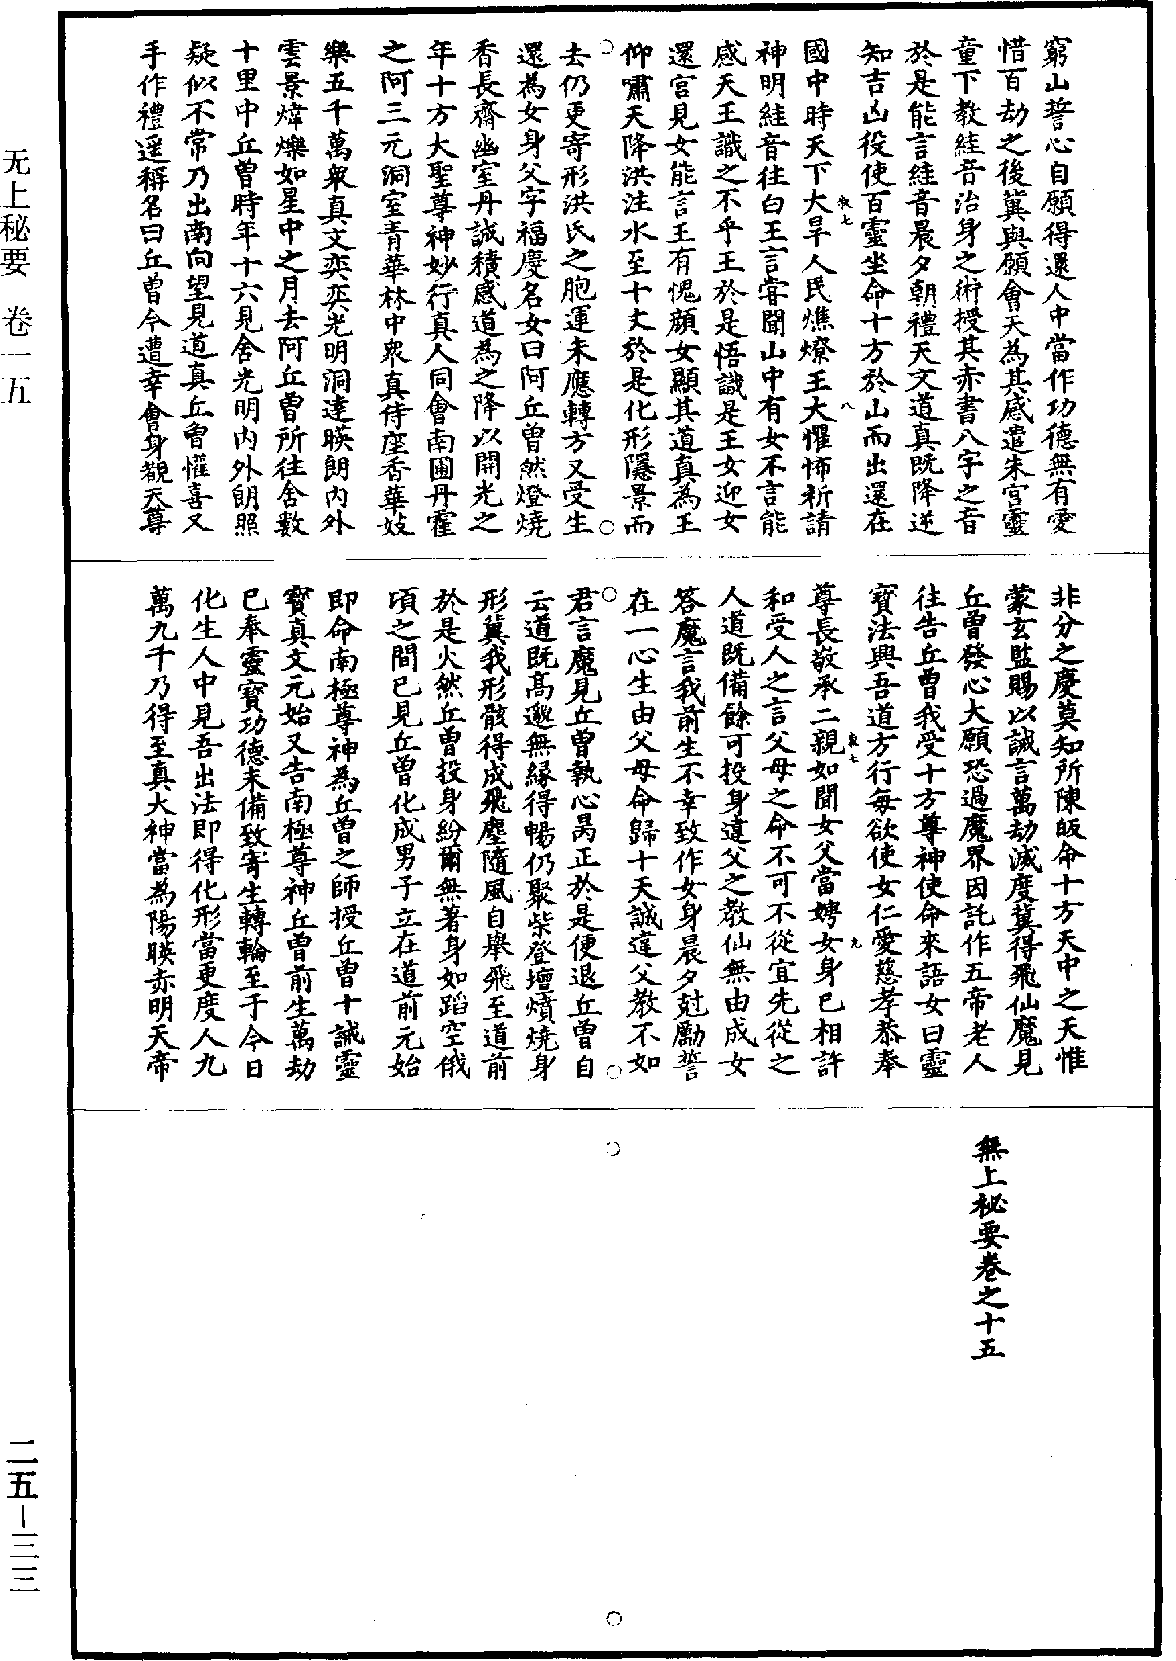 窮山誓心自願得還人中當作功德無有愛
惜百劫之後冀與願會天為其感遣朱宮靈
童下教絓音治身之術授其赤書八字之音
於是能言絓音晨夕朝禮天文道真既降逆
知吉凶役使百靈坐命十方於山而出還在
國中時天下大旱人民燋燎王大懼怖祈請
神明絓音往白王言甞聞山中有女不言能
感天王識之不乎王於是悟識是王女迎女
還宮見女能言王有愧顏女顯其道真為王
仰嘯天降洪注水至十丈於是化形隱景而
去仍更寄形洪氏之胞運未應轉方又受生
還為女身父字福慶名女曰阿丘曾然燈燒
香長齋幽室丹誠積感道為之降以開光之
年十方大聖尊神妙行真人同會南圃丹霍
之阿三元洞室青華林中衆真侍座香華妓
樂五千萬衆真文奕奕光明洞達暎朗內外
雲景煒爍如星中之月去阿丘曾所往舍數
十里中丘曾時年十六見舍光明內外朗照
疑似不常乃出南向望見道真丘曾懽喜叉
手作禮遥稱名曰丘曾今遭幸會身覩天尊
非分之慶莫知所陳皈命十方天中之天惟
蒙玄監賜以誠言萬劫滅度冀得飛仙魔見
丘曾發心大願恐過魔界因託作五帝老人
往告丘曾我受十方尊神使命來語女曰靈
寶法興吾道方行每欲使女仁愛慈孝恭奉
尊長敬承二親如聞女父當娉女身已相許
和受人之言父母之命不可不從宜先從之
人道既備餘可投身違父之教仙無由成女
荅魔言我前生不幸致作女身晨夕尅勵誓
在一心生由父母命歸十天誠違父教不如
君言魔見丘曾執心昺正於是便退丘曾自
云道既高邈無緣得暢仍聚柴登壇燌燒身
形冀我形骸得成飛塵隨風自舉飛至道前
於是火然丘曾投身紛爾無著身如蹈空俄
頃之間已見丘曾化成男子立在道前元始
即命南極尊神為丘曾之師授丘曾十誡靈
寶真文元始又告南極尊神丘曾前生萬劫
已奉靈寶功德未備致寄生轉輪至于今日
化生人中見吾出法即得化形當更度人九
萬九千乃得至真大神當為陽暎赤明天帝
無上秘要卷之十五
无上秘要 卷一五
二五—三三